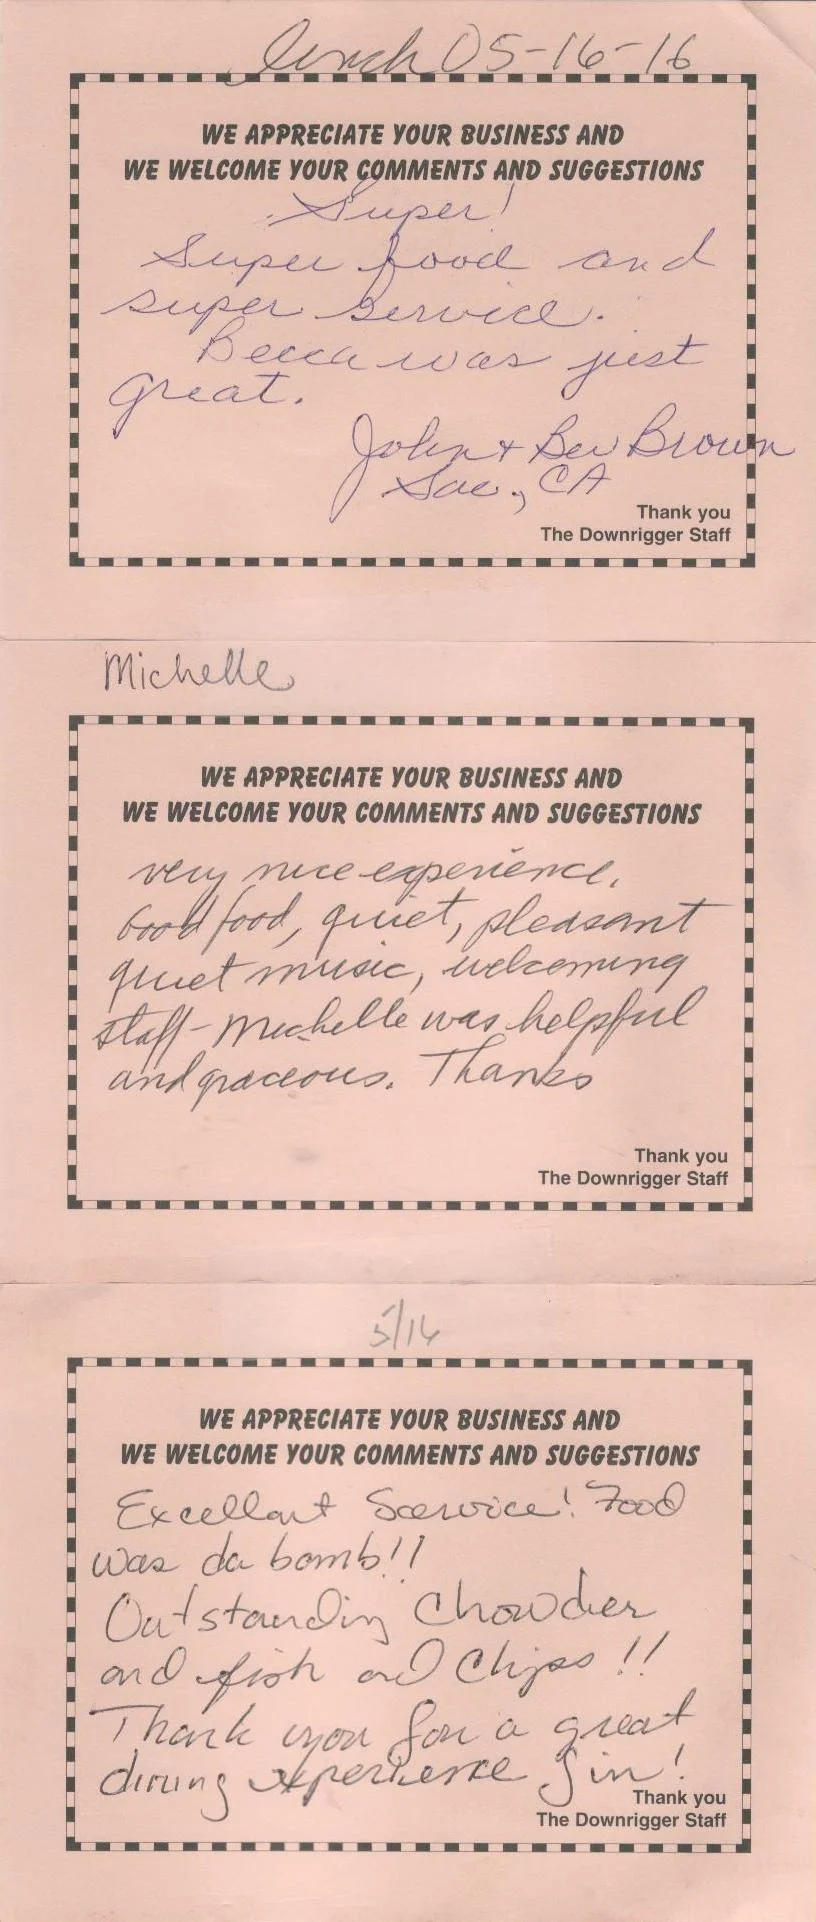 lunch 05-16-16
WE APPRECIATE YOUR BUSINESS AND
WE WELCOME YOUR COMMENTS AND SUGGESTIONS
Super!
Super food and
super service.
Becca was just
great.
John + Bev Brown
Sac, CA
Thank you
The Downrigger Staff
Michelle
WE APPRECIATE YOUR BUSINESS AND
WE WELCOME YOUR COMMENTS AND SUGGESTIONS
very nice experience.
Good food, quiet, pleasant
quiet music, welcoming
staff - Michelle was helpful
and graceous. Thanks
Thank you
The Downrigger Staff
5/16
WE APPRECIATE YOUR BUSINESS AND
WE WELCOME YOUR COMMENTS AND SUGGESTIONS
Excellant Service! Food
was da bomb!!
Outstanding Chowder
and fish and Chips!!
Thank you for a great
dining experience Jin!
Thank you
The Downrigger Staff